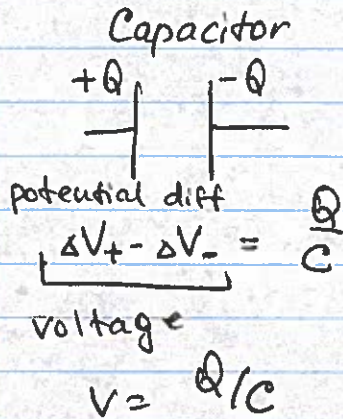 Capacitor
+Q -Q
potential diff
ΔV+ - ΔV- = Q/C
voltage
V = Q/C